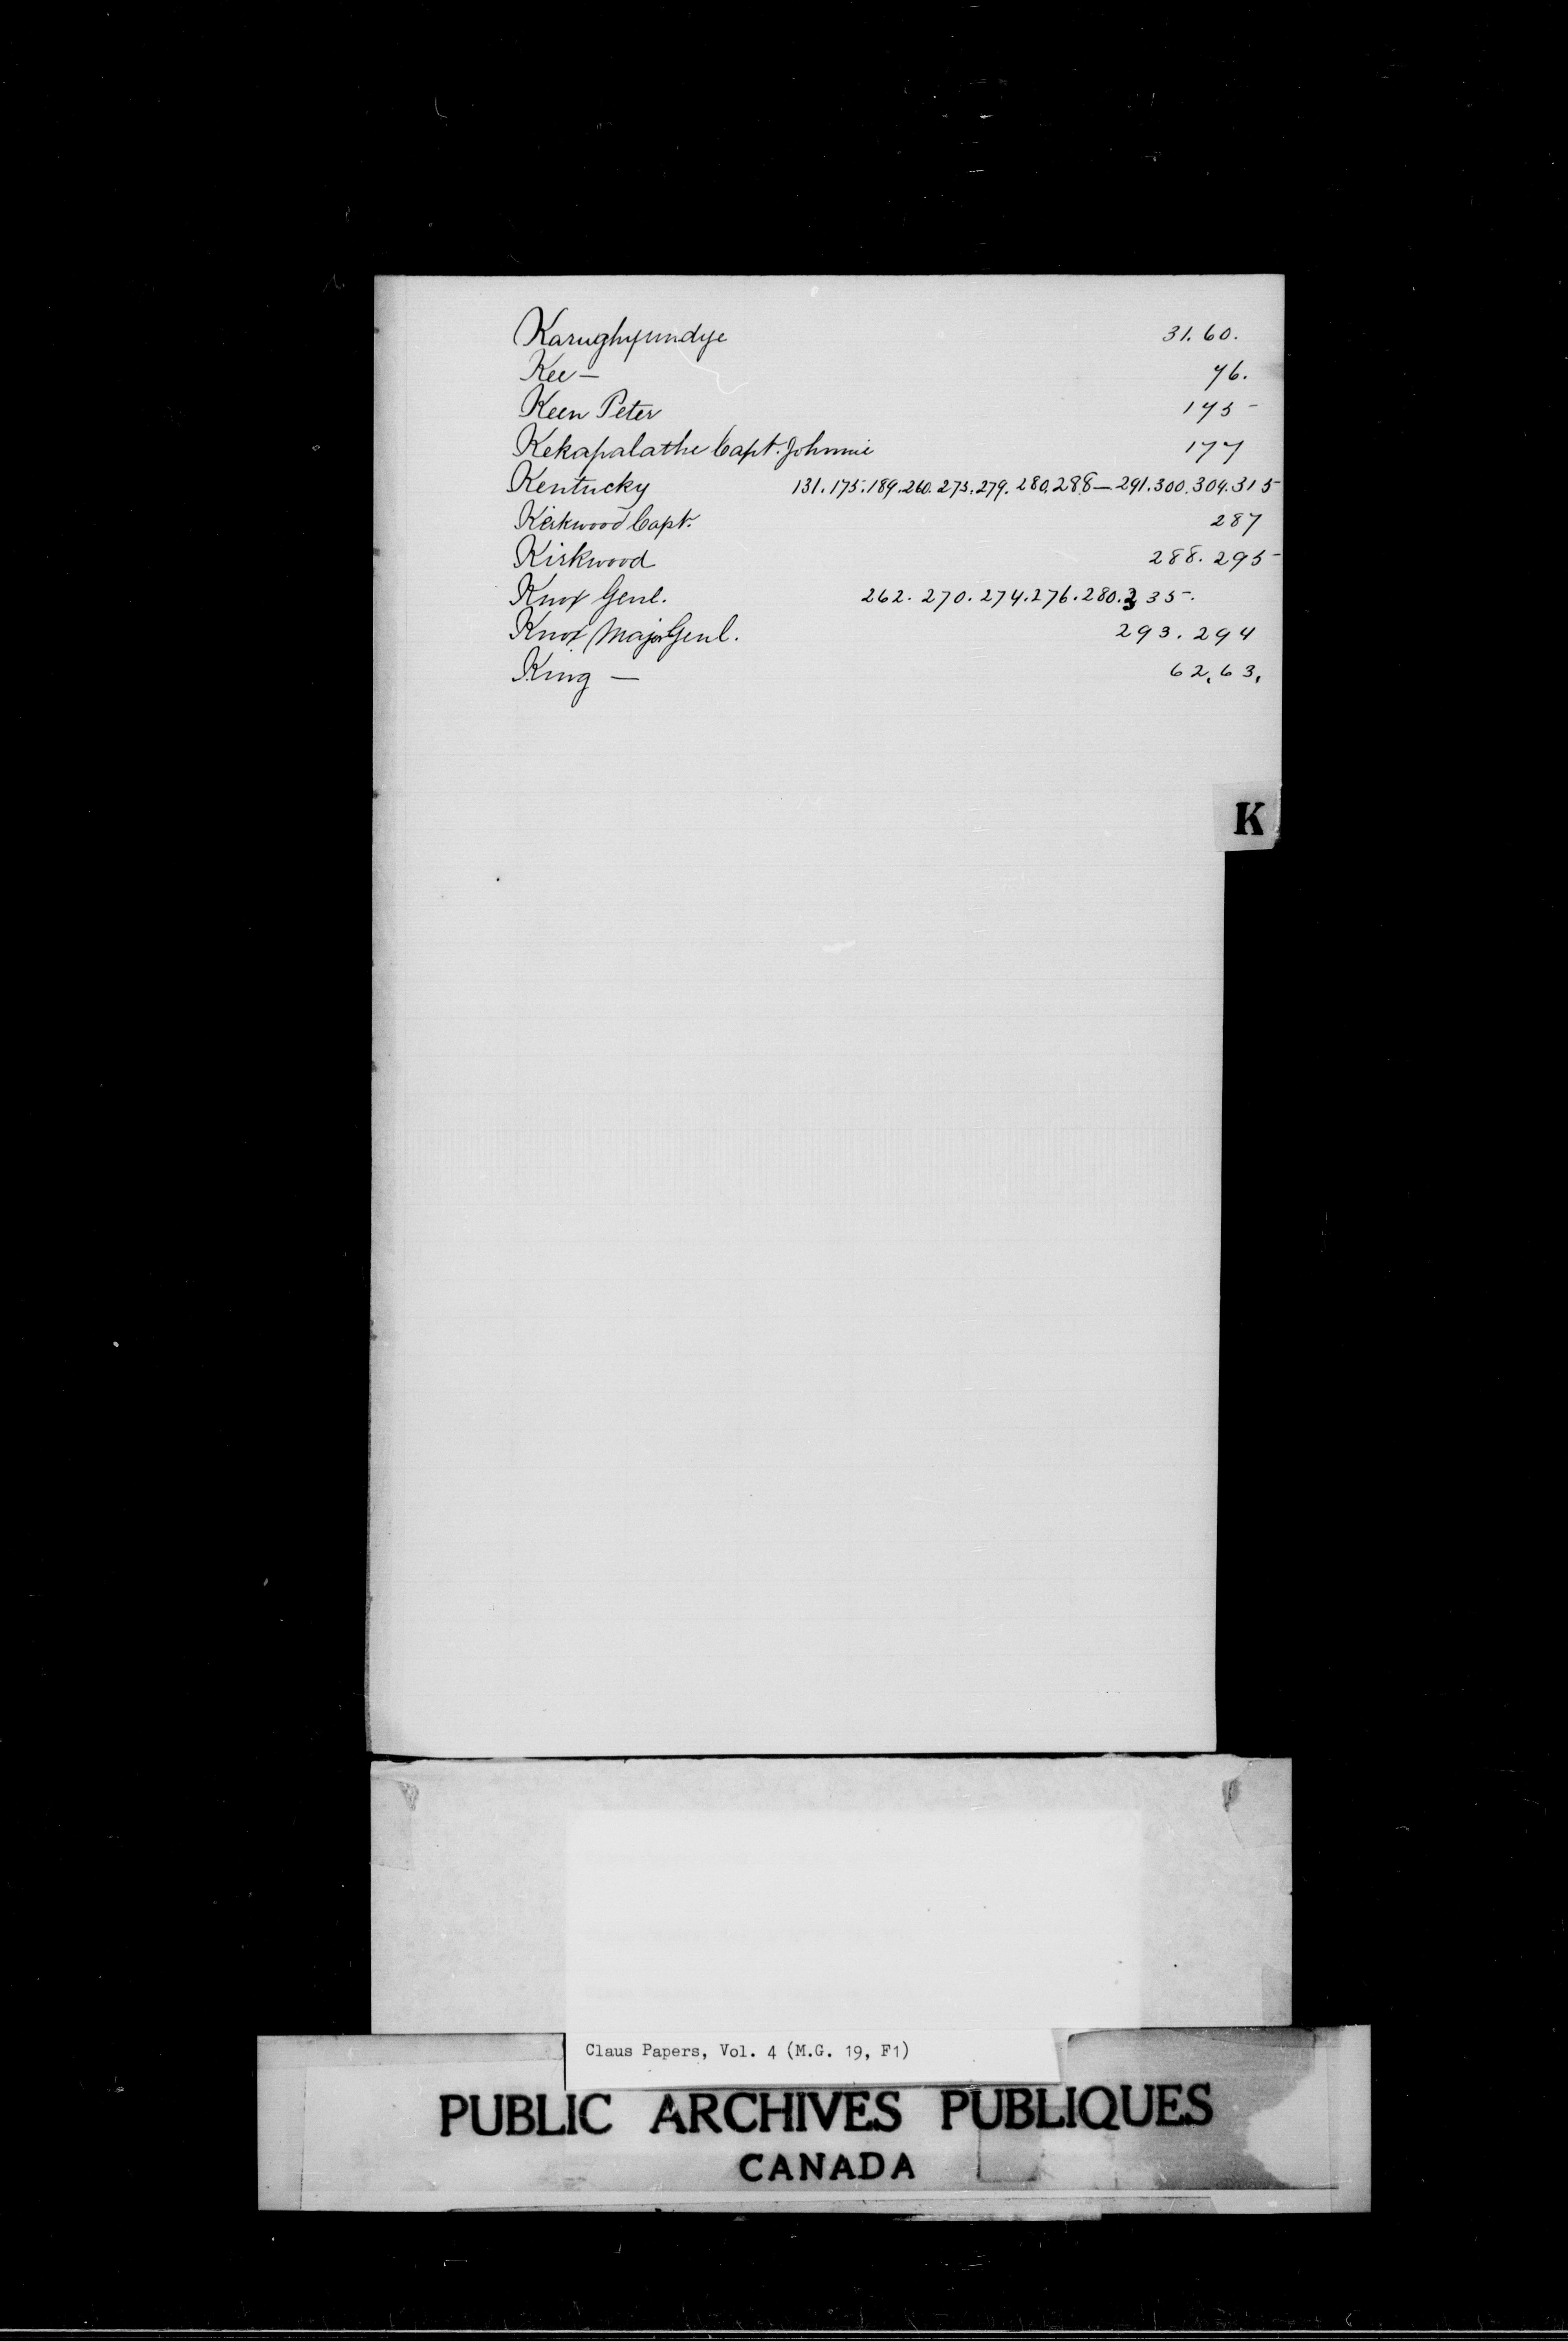 Karughyundye 31. 60.
Kee — 76.
Keen Peter 175
Kekapalathe Capt. Johnnie 177
Kentucky 131. 175. 189. 260. 275. 279. 280. 288 — 291. 300. 304. 315
Kirkwood Capt. 287
Kirkwood 288. 295
Knox Genl. 262. 270. 274. 276. 280. 335.
Knox Major Genl. 293. 294
King — 62, 63,
K
Claus Papers, Vol. 4 (M.G. 19, F1)
PUBLIC ARCHIVES PUBLIQUES
CANADA